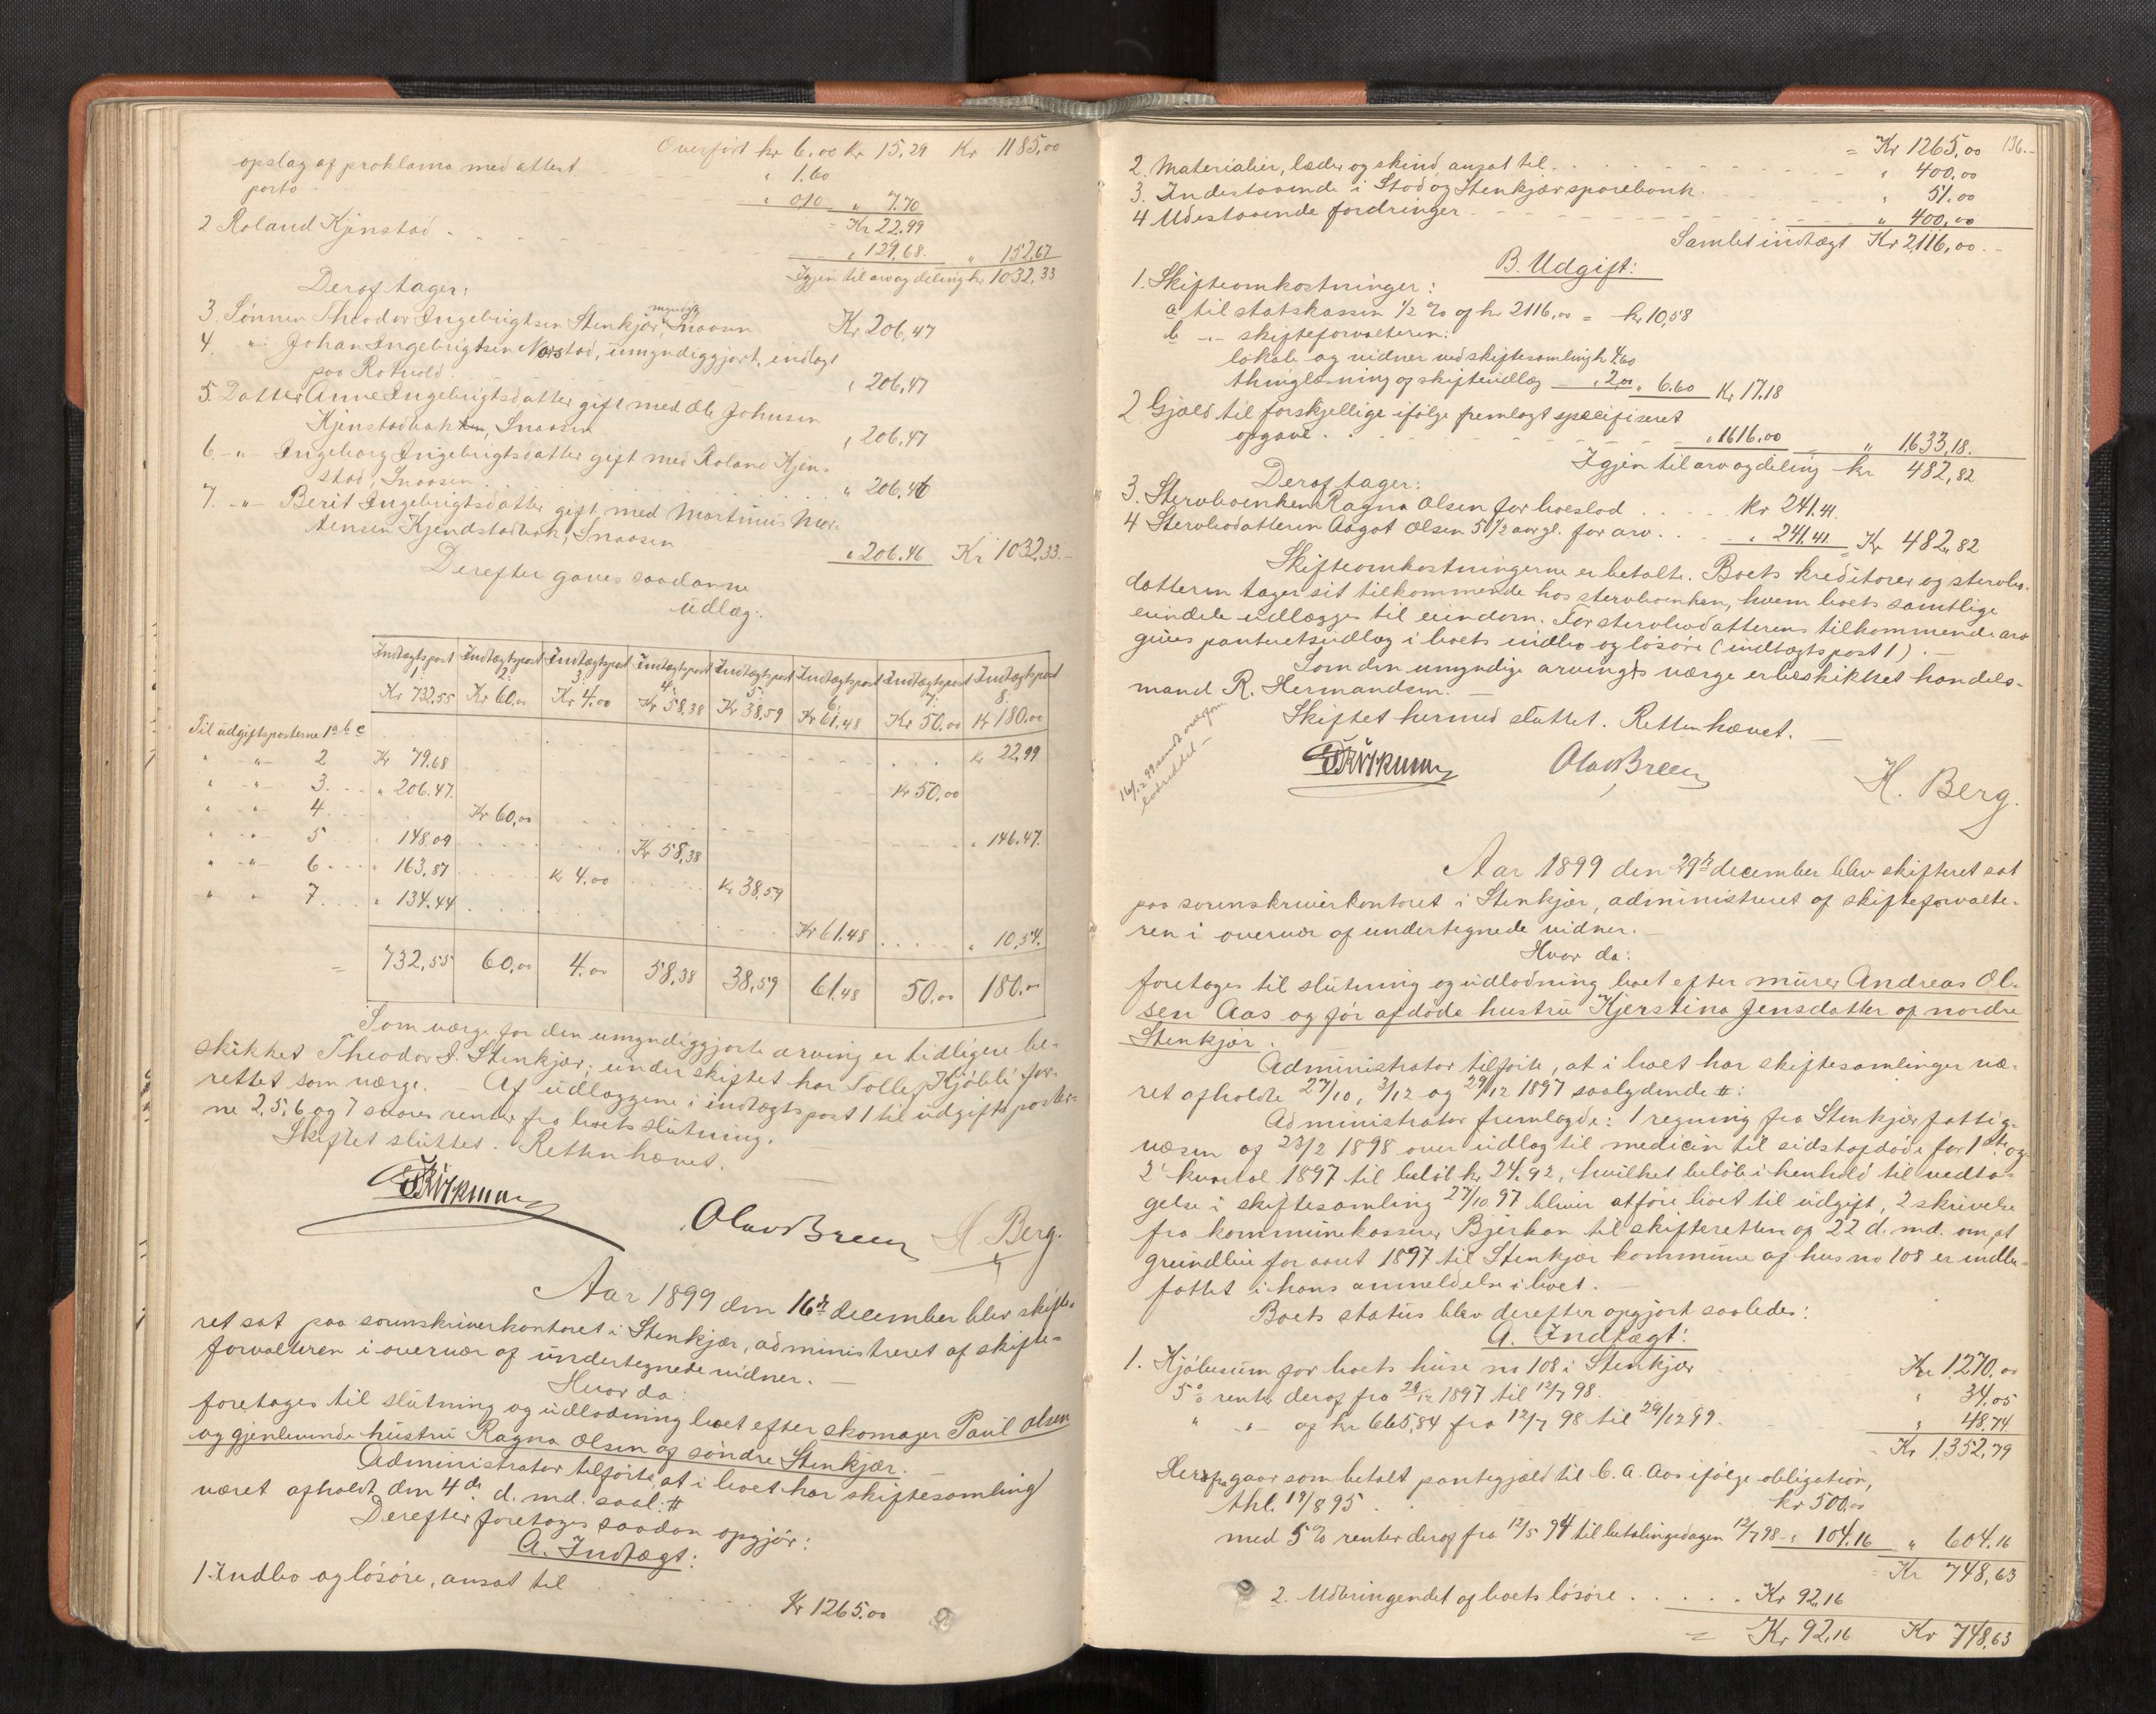 Overført kr 6.00 Kr 15,29 Kr 1185,00
opslag af proklama med attest " 1.60
porto " 0.10 " 7.70
= Kr 22.99
2 Roland Kjenstad " 129,68. " 152,67
Igjen til arv og deling kr 1032,33
Deraf tager:
3. Sønnen Theodor Ingebrigtsen Stenkjær, myndig, Snaasen Kr 206,47
4. " Johan Ingebrigtsen Aarstad, umyndiggjort, indlagt
paa Rotvold " 206.47
5. Datter Anne Ingebrigtsdatter gift med Ole Johnsen
Kjenstadbakken, Snaasen " 206.47
6. -"- Ingeborg Ingebrigtsdatter gift med Roland Kjen-
stad, Snaasen " 206,46
7. -"- Berit Ingebrigtsdatter gift med Martinus Mor-
tensen Kjendstadbak, Snaasen " 206.46 Kr 1032,33.-
Derefter gaves saadanne
udlæg:
Indtægtspost Indtægtspost 2. Indtægtspost 3. Indtægtspost 4. Indtægtspost 5. Indtægtspost 6. Indtægtspost 7. Indtægtspost 8.
Kr 732,55 Kr 60,00 Kr 4.00 Kr 58,38 Kr 38,59 Kr 61.48 Kr 50,00 Kr 180.00
Til udgiftsposterne 1 a b c Kr 22,99
" -"- 2 Kr 79.68
" -"- 3. " 206.47. Kr 50,00
" -"- 4. Kr 60,00 " 146.47.
" -"- 5 " 148.09 Kr 58,38
" -"- 6 " 163,87 Kr 4.00 Kr 38,59
" " 7. " 134.44 Kr 61.48 " 10,54.
= 732,55 60,00 4.00 58,38 38,59 61.48 50.00 180.00
Som værge for den umyndiggjorte arving er tidligere be-
skikket Theodor I. Stenkjær; under skiftet har Tollef Kjøbli for-
rettet som værge. - Af udlæggene i indtægtspost 1 til udgiftsposter-
ne 2, 5, 6 og 7 svares renter fra boets slutning.
Skiftet sluttet. Retten hævet.
Olav Breen H Berg.
Aar 1899 den 16de december blev skifte-
ret sat paa sorenskriverkontoret i Stenkjær, administreret af skifte-
forvalteren i overvær af undertegnede vidner. -
Hvor da:
foretages til slutning og udlodning boet efter skomager Paul Olsen
og gjenlevende hustru Ragna Olsen af søndre Stenkjær. -
Administrator tilførte, at i boet har skiftesamling
været afholdt den 4de d. md. saal. #
Derefter foretages saadan opgjør:
A. Indtægt:
1. Indbo og løsøre, ansat til Kr 1265.00
136.-
= Kr 1265,00
2. Materialier, læder og skind, ansat til " 400.00
3. Indestaaende i Stod og Stenkjær sparebank " 51.00
4 Udestaaende fordringer " 400,00
Samlet indtægt Kr 2116,00.-
B. Udgift:
1. Skifteomkostninger:
a til statskassen 1/2 % af kr 2116,00 = kr 10,58
b -"- skifteforvalteren:
lokale og vidner ved skiftesamling kr 4.60
thinglæsning af skifteudlæg - " 2,00 " 6.60 Kr 17.18
2 Gjæld til forskjellige ifølge fremlagt specifiseret
opgave " 1616.00 " 1633,18.
Igjen til arv og deling kr 482,82
Deraf tager:
3. Stervboenken Ragna Olsen for boeslod Kr 241.41.
4 Stervbodatteren Aagot Olsen 5 1/2 aar gl. for arv " 241.41. Kr 482,82
Skifteomkostningerne er betalte. Boets kreditorer og stervbo-
datteren tager sit tilkommende hos stervboenken, hvem boets samtlige
eiendele udlægges til eiendom. For stervbodatterens tilkommende arv
gives panteretsudlæg i boets indbo og løsøre (indtægtspost 1). -
Som den umyndige arvings værge er beskikket handels-
mand R. Hermandsen. -
Skiftet hermed sluttet. Retten hævet. -
Olav Breen H. Berg.
Aar 1899 den 29de december blev skifteret sat
paa sorenskriverkontoret i Stenkjær, administreret af skifteforvalte-
ren i overvær af undertegnede vidner. -
Hvor da:
foretages til slutning og udlodning boet efter murer Andreas Ol-
sen Aas og før afdøde hustru Kjerstina Jensdatter af nordre
Stenkjær.
Administrator tilførte, at i boet har skiftesamlinger væ-
ret afholdte 27/10, 3/12 og 29/12 1897 saalydende #:
Administrator fremlagde: 1 regning fra Stenkjær fattig-
væsen af 23/2 1898 over udlæg til medicin til sidstafdøde for 1ste og
2 kvartal 1897 til beløb kr. 24.92, hvilket beløb i henhold til vedta-
gelse i skiftesamling 27/10 97 bliver at føre boet til udgift, 2 skrivelse
fra kommunekasserer Bjerkan til skifteretten af 22 d. md. om at
grundleie for aaret 1897 til Stenkjær kommune af hus no 108 er indbe-
fattet i hans anmeldelse i boet. -
Boets status blev derefter opgjort saaledes:
A. Indtægt:
1. Kjøbesum for boets huse no 108 i Stenkjær Kr 1270.00
5 % renter deraf fra 29/12 1897 til 12/7 98. " 34,05
" -"- af kr 665,84 fra 12/7 98 til 29/12 99. " 48.74
Kr 1352,79
Herfra gaar som betalt pantegjæld til C. A. Aas ifølge obligation,
thl. 19/8 95 kr 500.00
med 5 % renter deraf fra 12/5 94 til betalingsdagen 12/7 98 - " 104.16 " 604.16
Kr 748,63
2. Udbringendet af boets løsøre Kr 92,16
= Kr 92,16 Kr 748,63